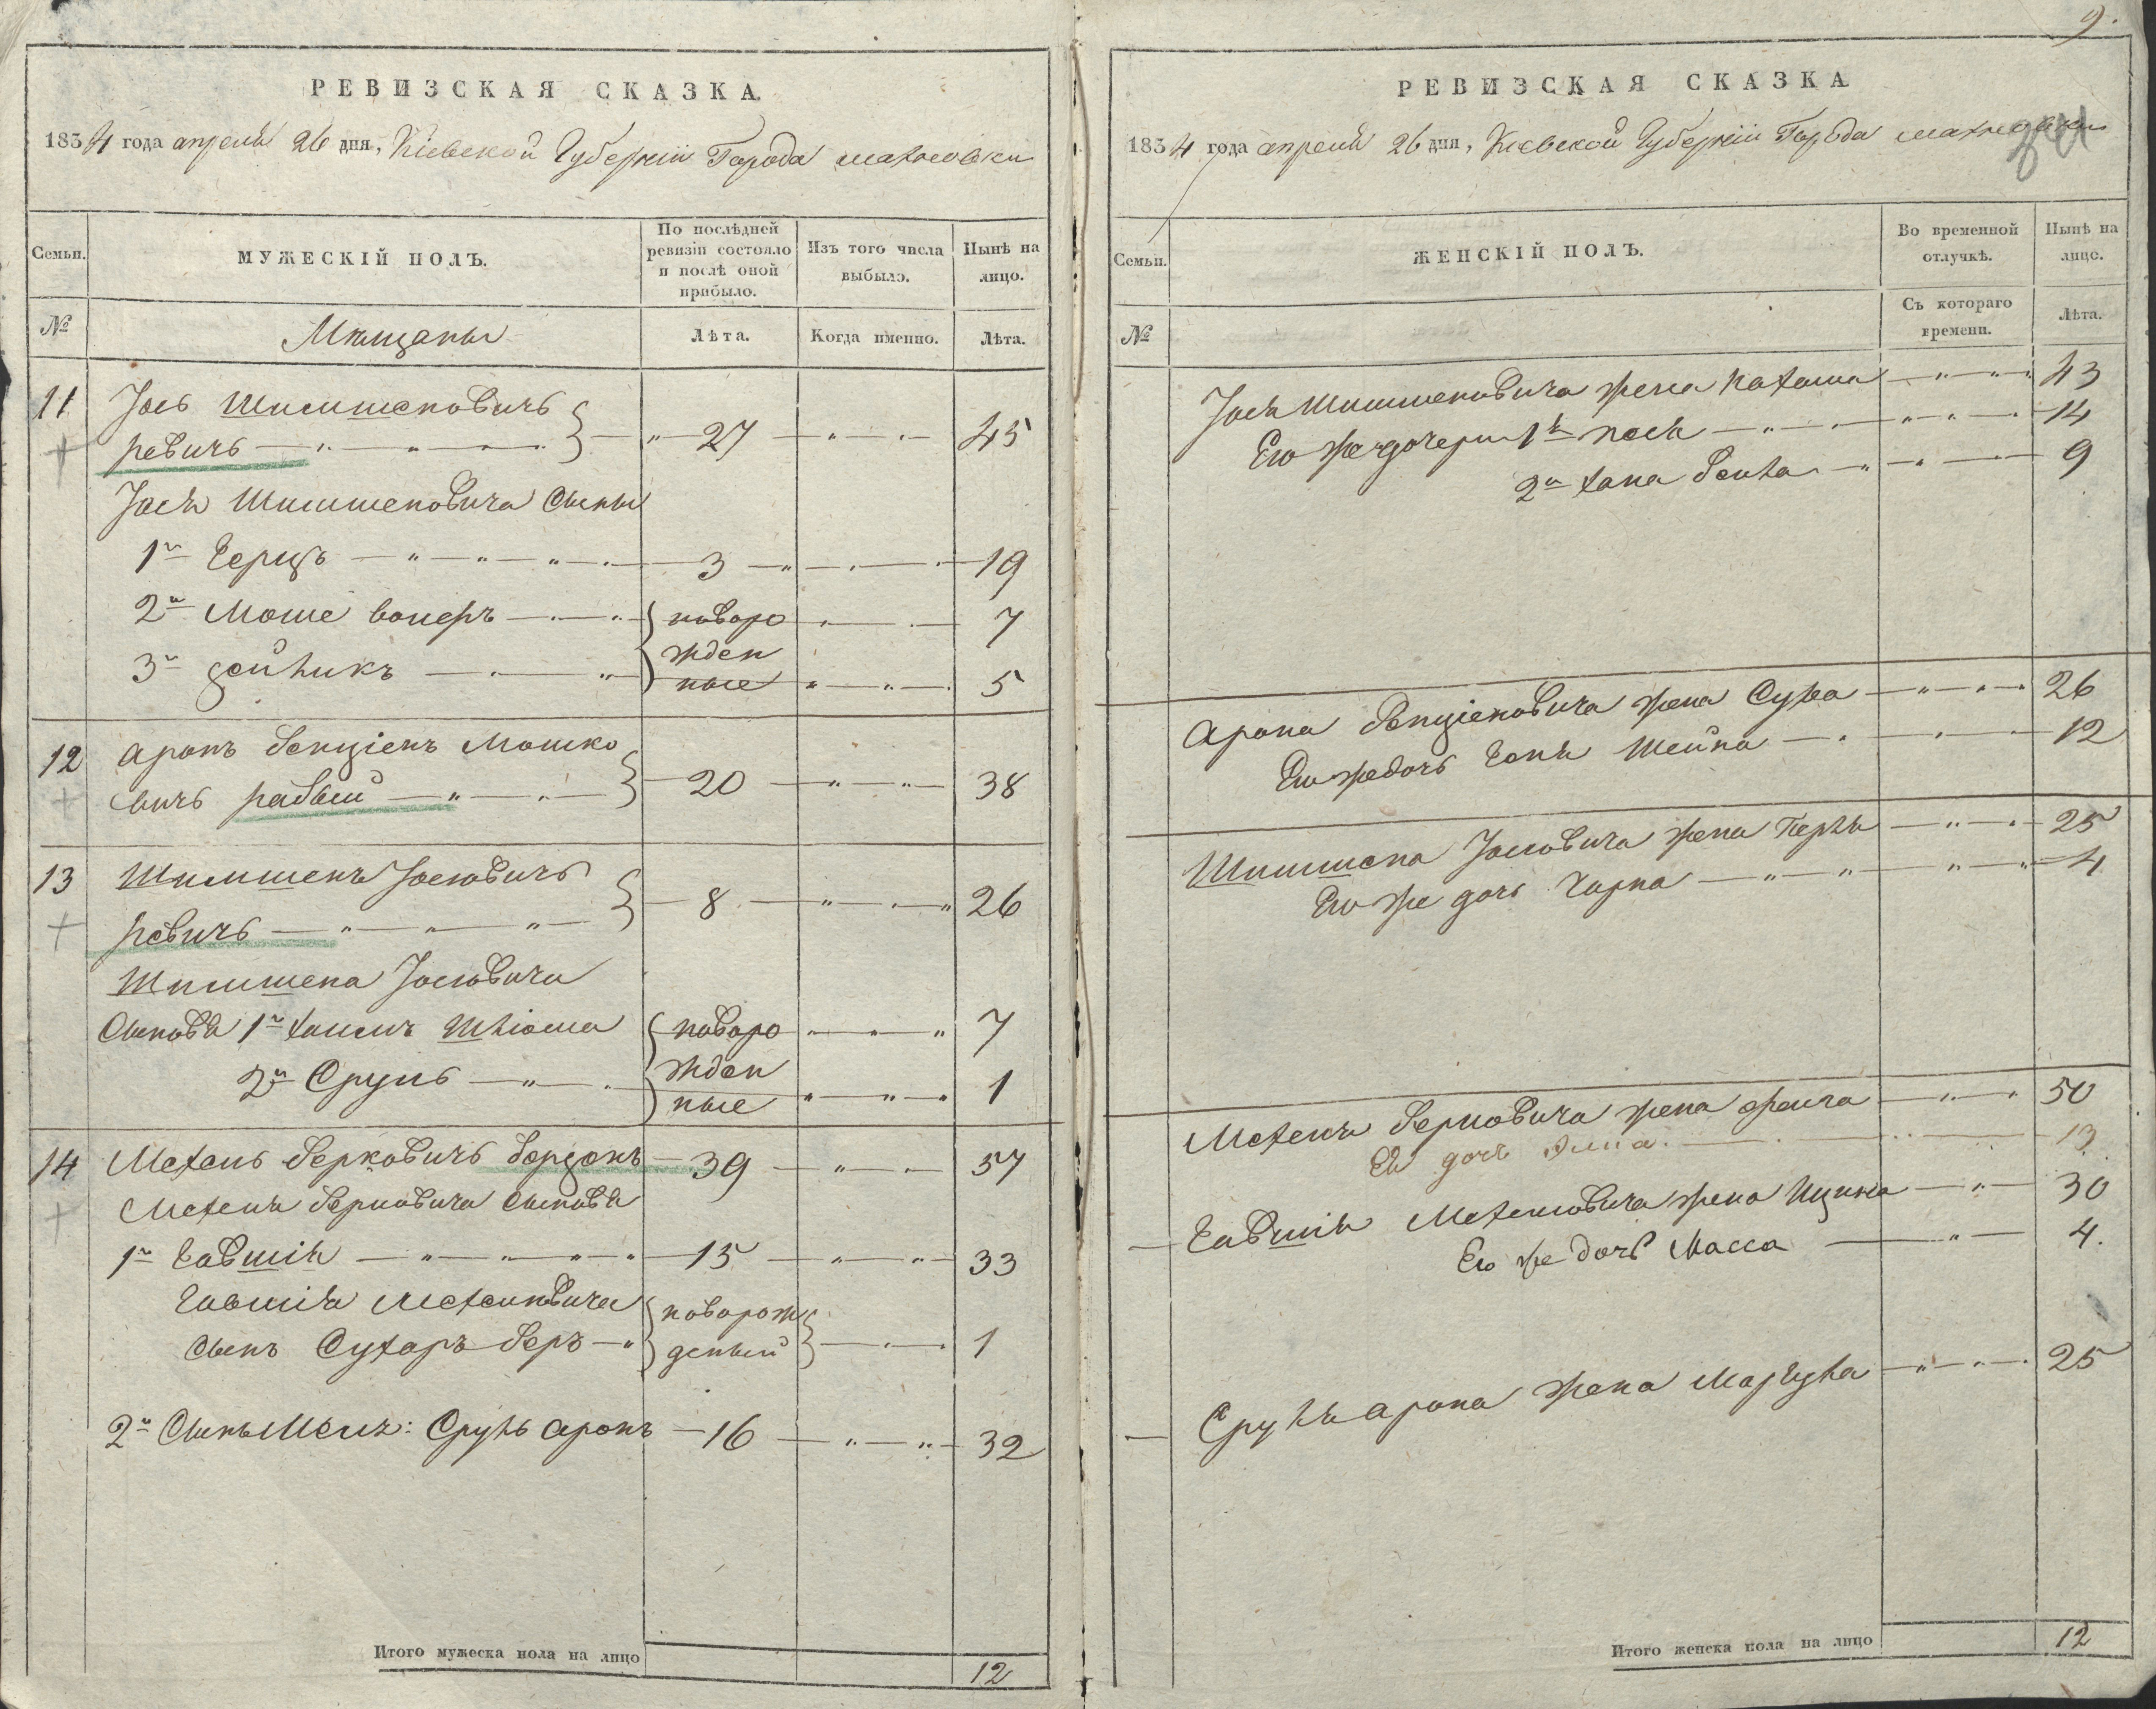 9.
РЕВИЗСКАЯ СКАЗКА
1834 года апреля 26 дня, Кіевской Губерніи Города Махновки
Семьи.
МУЖЕСКІЙ ПОЛЪ.
По послѣдней ревизіи состояло и послѣ оной прибыло.
Изъ того числа выбыло.
Нынѣ на лицо.
№
Мѣщаны
Лѣта.
Когда именно.
Лѣта.
11 Іось Шимшеновичъ
ревичъ 27 45
Іося Шимшеновича Сыны
1й Герцъ 3 19
2й Моше новоро 7
3й жден
ные 5
12 Аронъ Бенціенъ Мошко
вичъ рабый 20 38
13 Шимшенъ Іосіовичъ
ревичъ 8 26
Шимшена Іосіовича
Сыновя 1й Хаимъ новоро 7
2й Сруль жден
ные 1
14 Мехель Берковичъ Бордонъ 39 57
Мехеля Берковича Сыновя
1й Говшія 15 33
Говшія Мехелиовича новорож
Сынъ Сухаръ Беръ деный 1
2й Сынъ Мехл: Срулъ Аронъ 16 32
Итого мужеска пола на лицо 12
РЕВИЗСКАЯ СКАЗКА
1834 года апреля 26 дня, Кіевской Губерніи Города Махновки
Семьи.
ЖЕНСКІЙ ПОЛЪ.
Во временной отлучкѣ.
Нынѣ на лицо.
№
Съ котораго времени.
Лѣта.
Іося Шимшеновича жена Нахама 43
Его же дочери 1я Песя 14
2я Хана 9
Арона Бенціеновича жена Сура 26
Его же дочь Геня Шейна 12
Шимшена Іосіовича жена Перля 25
Его же дочь Чарна 4
Мехеля Берковича жена Фейга 50
Ея дочь 13
Говшія Мехелиовича жена 30
Его же дочь Масса 4.
Сруля Арона жена 25
Итого женска пола на лицо 12